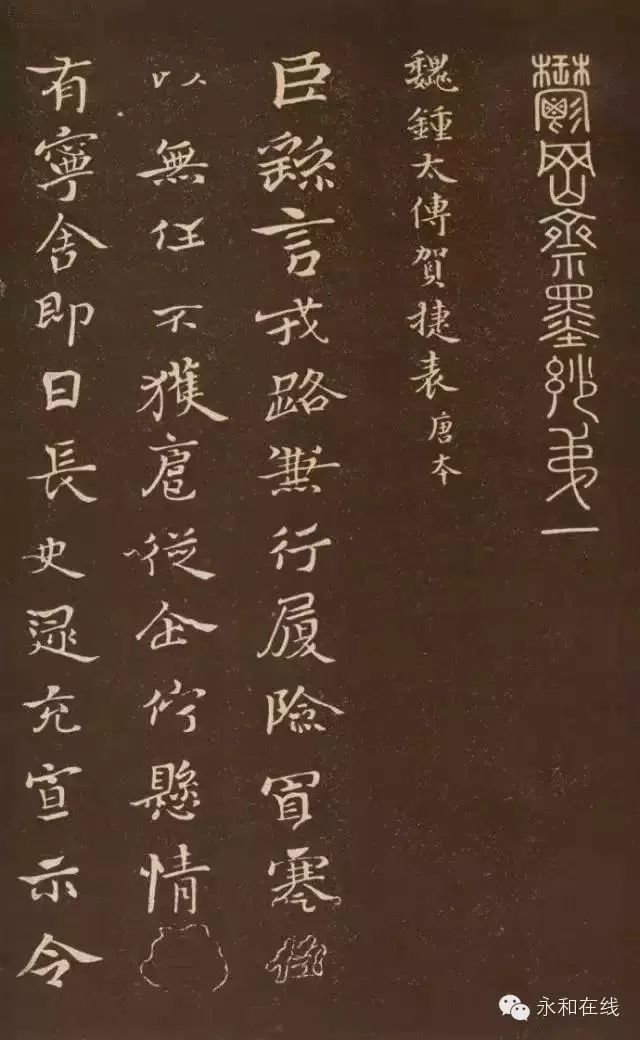 鬱岡齋墨妙第一
魏鍾太傅賀捷表唐本
臣繇言戎路兼行履險冒寒臣
以無任不獲扈從企佇懸情
有寧舍即日長史逯充宣示令
永和在线